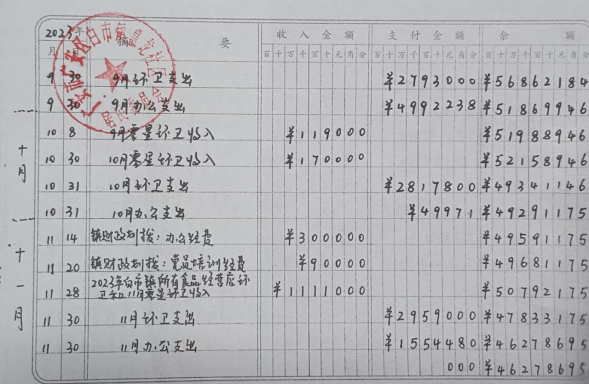 2023年 摘要 收入金额 支付金额 余额
月 日 百十万千百十元角分 百十万千百十元角分 百十万千百十元角分
9 30 9月环卫支出 ¥2793000 ¥56862184
9 30 9月办公支出 ¥4992238 ¥51869946
十月
10 8 9月零星环卫收入 ¥119000 ¥51988946
10 30 10月零星环卫收入 ¥170000 ¥52158946
10 31 10月环卫支出 ¥2817800 ¥49341146
10 31 10月办公支出 ¥49971 ¥49291175
十一月
11 14 镇财政划拨：办公经费 ¥300000 ¥49591175
11 20 镇财政划拨：党员培训经费 ¥90000 ¥49681175
2023年白市镇所有食品经营店环
11 28 卫和11月零星环卫收入 ¥1111000 ¥50792175
11 30 11月环卫支出 ¥2959000 ¥47833175
11 30 11月办公支出 ¥1554480 ¥46278695
000 ¥46278695